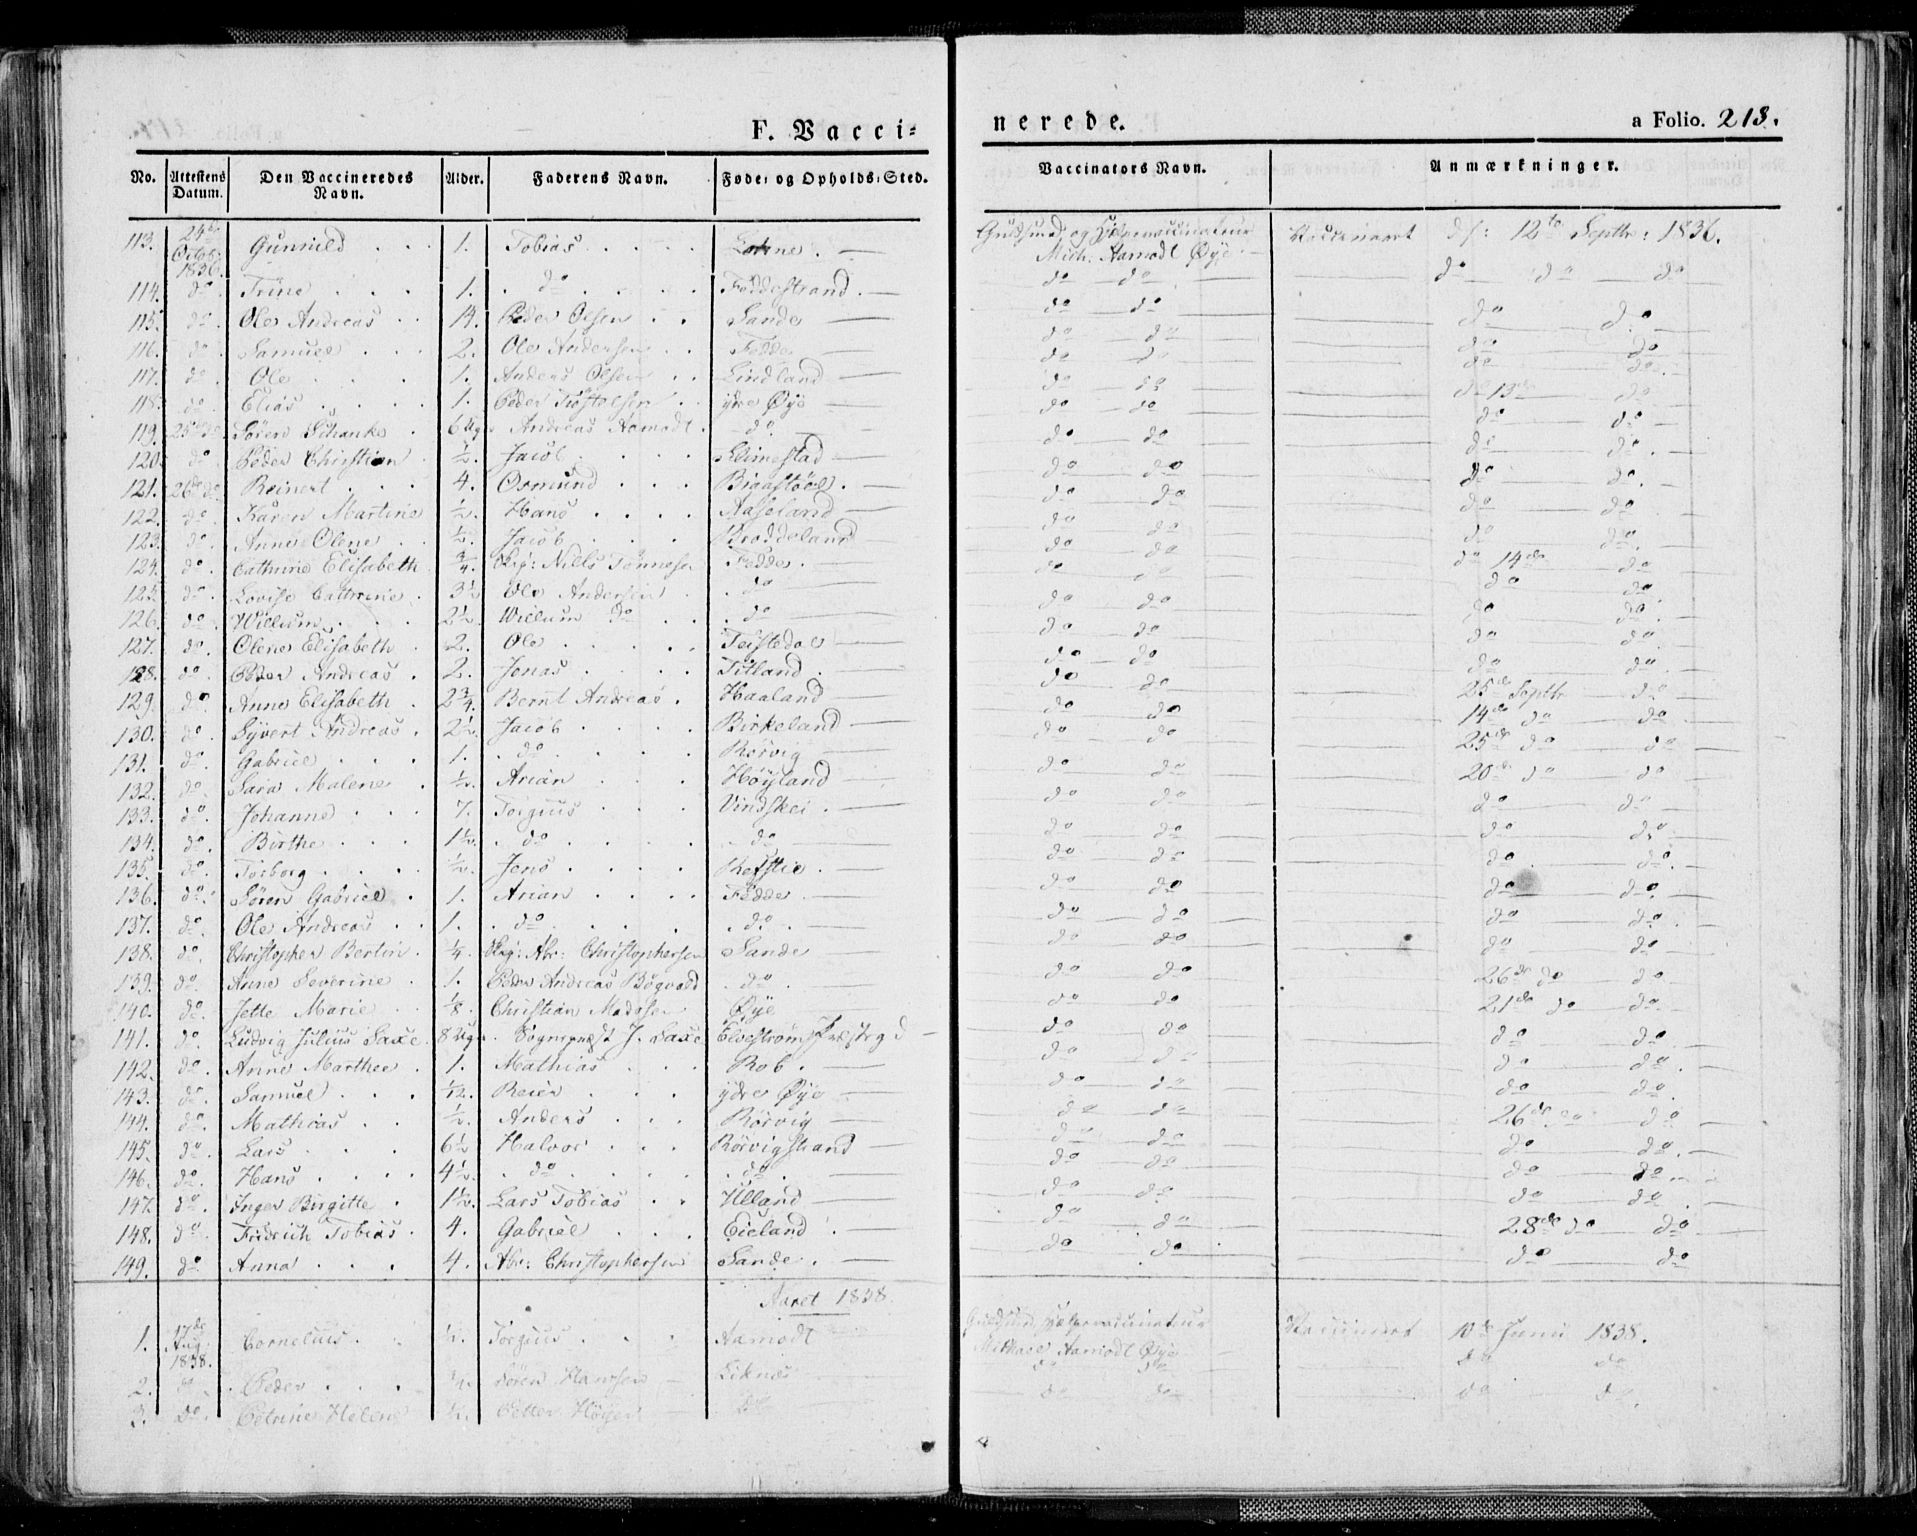 F. Vacci-
No. | Attestens Datum. | Den Vaccineredes Navn. | Alder. | Faderens Navn. | Føde- og Opholds-Sted.
113. 24de Octob: 1836. Gunnild 1. Tobias
114. do. Trine 1. do Feddestrand.
115. do. Ole Andreas 14. Peder Olsen Sande
116. do. Samuel 2. Ole Andersen Fedde
117. do. Ole 1. Anders Olsen Lindland
118. do. Elias 1. Peder ydre Øye
119. 25de do. Søren Schanke 6 Ugr Andreas Aamodt. do.
120. do. Peder Christian ½. Jacob
121. 26de do. Reinert 4. Osmund
122. do. Karen Martine ½. Hans Aaseland
123. do. Anne Olene ½. Jacob Broddeland
124. do. Cathrine Elisabeth ¾. Nills Tønnesen Fedde.
125. do. Lovise Cathrine 3½ Ole Andersen do
126. do. Willum 2½. Willum do do
127. do. Olene Elisabeth 2. Ole Feistedal
128. do. Peder Andreas 2. Jonas Titland.
129. do. Anne Elisabeth 2¾. Bernt Andreas Haaland
130. do. Syvert Andreas 2½. Jacob Birkeland
131. do. Gabriel 1. do Rørvig
132. do. Sara Malene ½. Arian Høyland
133. do. Johanne 7. Torgius Vindskei.
134. do. Birthe 1½. do do
135. do. Torborg ½. Jens Refstie.
136. do. Søren Gabriel 1. Arian Fedde
137. do. Ole Andreas 1. do do.
138. do. Christopher Bertin ¼. Abr: Christophersen Sande
139. do. Anne Severine 1. Peder Andreas Bøgvald do
140. do. Jette Marie ⅛. Christian Madssen Øye
141. do. Ludvig Julius Saxe. 8 Ugr. Sognepræst J. Saxe Elvestrøm Præstegd
142. do. Anne Marthee 1. Mathias Rob.
143. do. Samuel 1/12. Reier ydre Øye
144. do. Mathias ½. Anders Rørvig
145. do. Lars 6½ Halvor Rørvigstrand
146. do. Hans 4½. do do.
147. do. Inger Birgitte 1½. Lars Tobias Ulland
148. do. Fredrich Tobias 4. Gabriel Eieland
149. do Anna 4. Abr: Christophersen Sande.
Aaret 1838.
1. 17de Aug: 1838. Cornelius. Torgius Aamodt
2. do. Peder Søren Hansen Liknes
3. do. Petrine Helene Petter Høyer do
nerede.
a Folio. 213.
Vaccinators Navn. | Anmærkninger.
Guldsmed og Hjelpevaccinateur Mich: Aamodt Øye Vaccineert d: 12te Septbr: 1836.
do do do do do
do do do do
do do do do
do do do do
do do d 13de do
do do do do
do do do.
do do do do.
do do do do.
do do do do.
do do d 14de do
do do do do.
do do do do.
do do do do.
do do do do.
do do 25de Septbr do
do do 14de do do
do do 25de do do
do do 20de do do
do do do do
do do do do.
do do do do.
do do do do.
do do do do.
do do do do
do do 26de do do
do do 21de do do.
do do do do.
do do do do.
do do do do.
do do 26de do do
do do do do.
do do do do
do do do do.
do do 28de do do
do do do do
Guldsmed, Hjelpevaccinateur Michael Aamodt Øye Vaccineert 10de Junii 1838.
do do do do
do do do do.